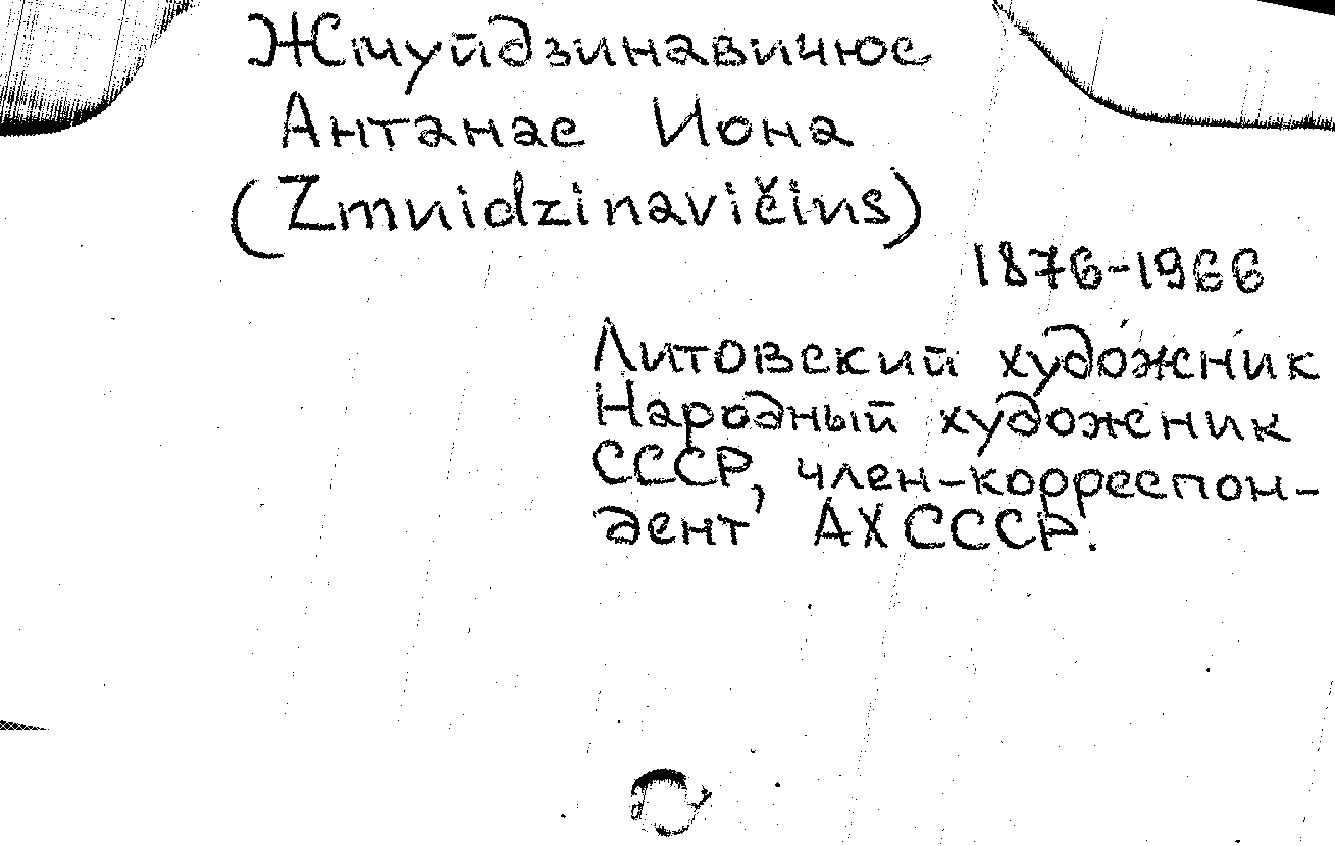 Жмуйдзинавичюс
Антанас Иона
(Zmuidzinavičius)
1876-1966
Литовский художник
Народный художник
СССР, член-корреспон-
дент АХ СССР.